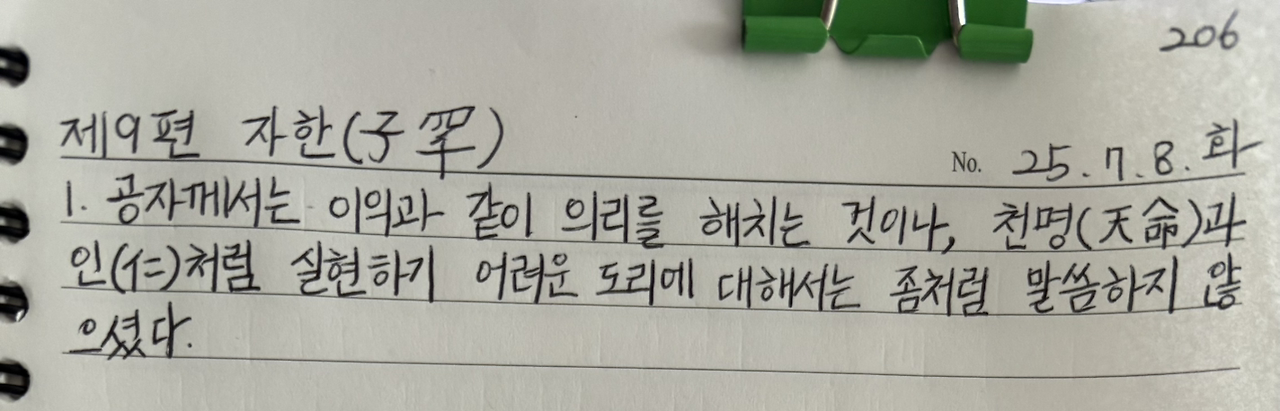 206
제9편 자한(子罕)
No. 25.7.8.화
1. 공자께서는 이익과 같이 의리를 해치는 것이나, 천명(天命)과
인(仁)처럼 실현하기 어려운 도리에 대해서는 좀처럼 말씀하지 않
으셨다.